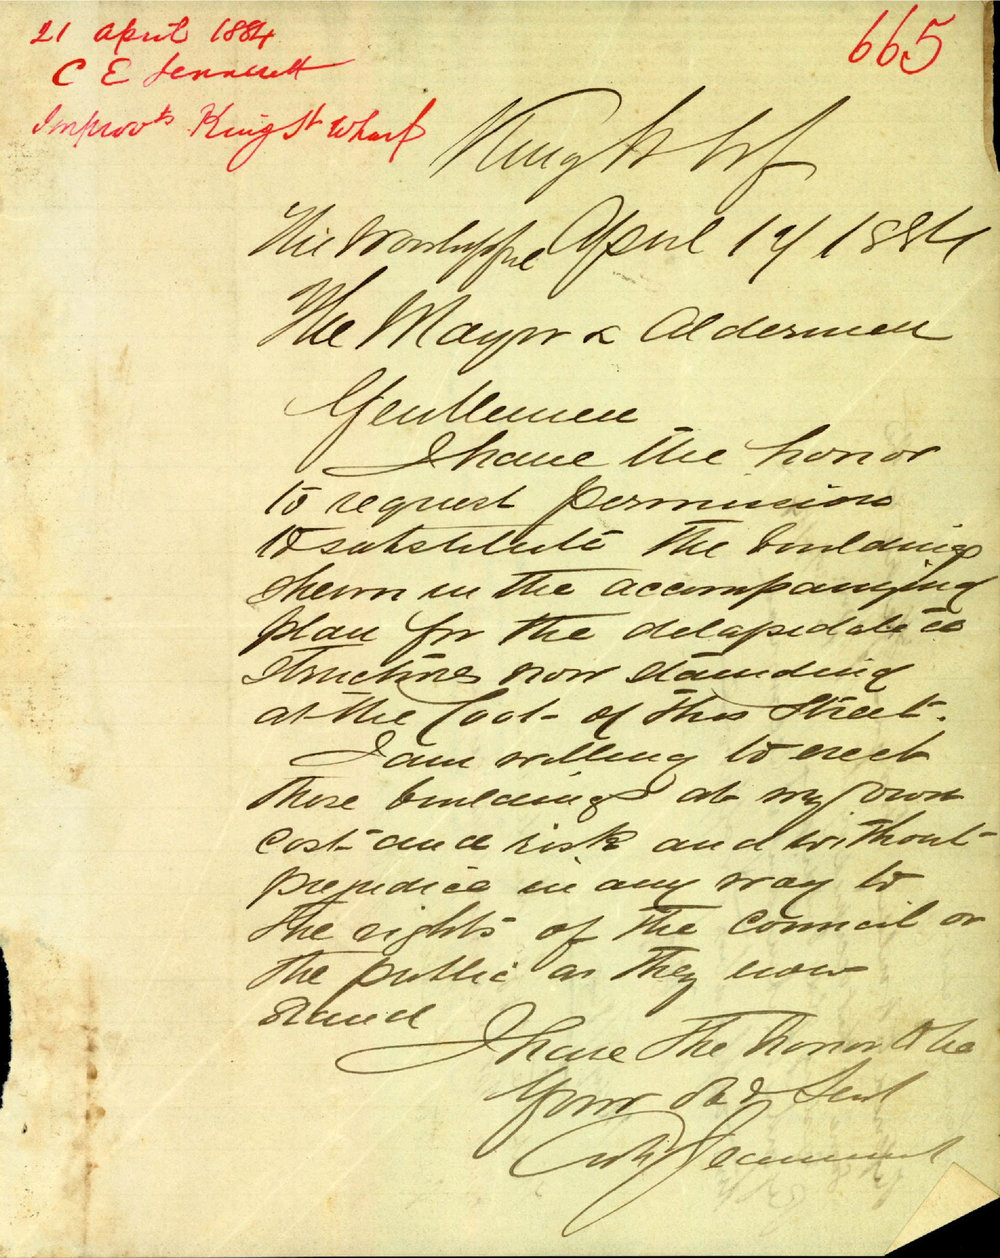 21 April 1884
C E Jeanneret
Improvts King St Wharf
665
King St Whf
His Worshipful April 19 1884
The Mayor & Aldermen
Gentlemen
I have the honor
to request permission
to substitute the buildings
shewn in the accompanying
plan for the delapidated
structures now standing
at the foot of this Street.
I am willing to erect
these buildings at my own
cost and risk and without
prejudice in any way to
the rights of the Council or
the public as they now
stand
I have the honor to be
Your ob d Servt
Jeanneret